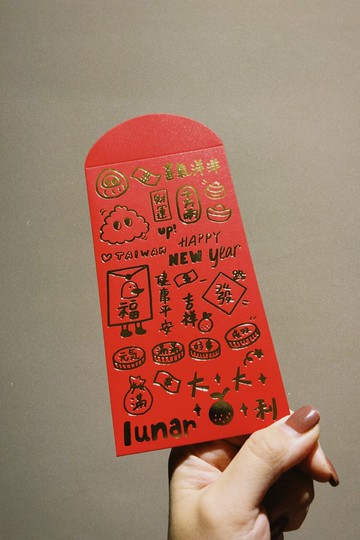 喜氣洋洋
財運
up!
HAPPY
TAIWAN
NEW year
發
健康平安
吉祥
福
元氣
滿滿
好事
滿
大大
利
lunar